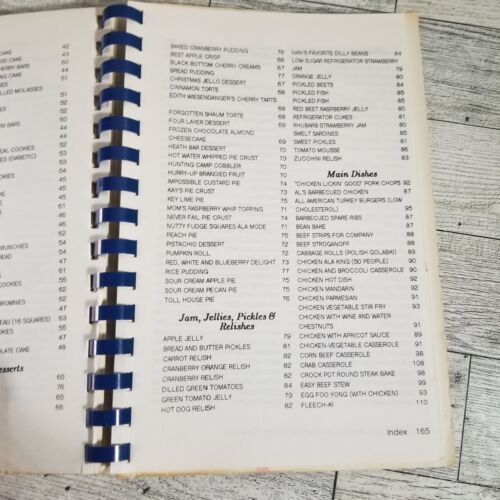 CAKE 42
OD CAKE 43
ERRY BARS 60
NG CAKE 44
ILLED MOLASSES
51
52
INI BARS 44
EAL COOKIES 51
S (DIABETIC) 51
53
53
62
45
RUNCHES 54
READ 54
54
46
OOKIES 54
ROWNIES
63
EAD (16 SQUARES) 63
OKIES 55
OLATE CAKE 48
esserts
65
76
65
66
BAKED CRANBERRY PUDDING 76
BEST APPLE CRISP 66
BLACK BOTTOM CHERRY CREAMS 67
BREAD PUDDING 77
CHRISTMAS JELLO DESSERT 67
CINNAMON TORTE 68
EDITH WIESENDANGER'S CHERRY TARTS
68
FORGOTTEN SHAUM TORTE 68
FOUR LAYER DESSERT 69
FROZEN CHOCOLATE ALMOND
CHEESECAKE 69
HEATH BAR DESSERT 70
HOT WATER WHIPPED PIE CRUST 73
HUNTING CAMP COBBLER 70
HURRY-UP BRANDED FRUIT 70
IMPOSSIBLE CUSTARD PIE 74
KAY'S PIE CRUST 73
KEY LIME PIE 74
MOM'S RASPBERRY WHIP TOPPING 71
NEVER FAIL PIE CRUST 74
NUTTY FUDGE SQUARES ALA MODE 71
PEACH PIE 75
PISTACHIO DESSERT 72
PUMPKIN ROLL 72
RED, WHITE AND BLUEBERRY DELIGHT 73
RICE PUDDING 77
SOUR CREAM APPLE PIE 75
SOUR CREAM PECAN PIE 75
TOLL HOUSE PIE 76
Jam, Jellies, Pickles &
Relishes
APPLE JELLY 79
BREAD AND BUTTER PICKLES 81
CARROT RELISH 82
CRANBERRY ORANGE RELISH 82
CRANBERRY RELISH 82
DILLED GREEN TOMATOES 84
GREEN TOMATO JELLY 79
HOT DOG RELISH 82
IVAN'S FAVORITE DILLY BEANS 84
LOW SUGAR REFRIGERATOR STRAWBERRY
JAM 79
ORANGE JELLY 80
PICKLED BEETS 84
PICKLED FISH 85
PICKLED FISH 85
RED BEET RASPBERRY JELLY 80
REFRIGERATOR CUKES 81
RHUBARB STRAWBERRY JAM 80
SMELT SARDINES 85
SWEET PICKLES 81
TOMATO MOUSSE 86
ZUCCHINI RELISH 83
Main Dishes
"CHICKEN LICKIN' GOOD" PORK CHOPS 92
AL'S BARBECUED CHICKEN 87
ALL AMERICAN TURKEY BURGERS (LOW
CHOLESTEROL) 95
BARBECUED SPARE RIBS 87
BEAN BAKE 87
BEEF STRIPS FOR COMPANY 88
BEEF STROGANOFF 88
CABBAGE ROLLS (POLISH GOLABKI) 89
CHICKEN ALA KING (50 PEOPLE) 90
CHICKEN AND BROCCOLI CASSEROLE 90
CHICKEN HOT DISH 92
CHICKEN MANDARIN 92
CHICKEN PARMESIAN 91
CHICKEN VEGETABLE STIR FRY 93
CHICKEN WITH WINE AND WATER
CHESTNUTS 91
CHICKEN WITH APRICOT SAUCE 89
CHICKEN-VEGETABLE CASSEROLE 91
CORN BEEF CASSEROLE 98
CRAB CASSEROLE 108
CROCK POT ROUND STEAK BAKE 98
EASY BEEF STEW 99
EGG FOO YONG (WITH CHICKEN) 93
FLEECH-KI 110
Index 165